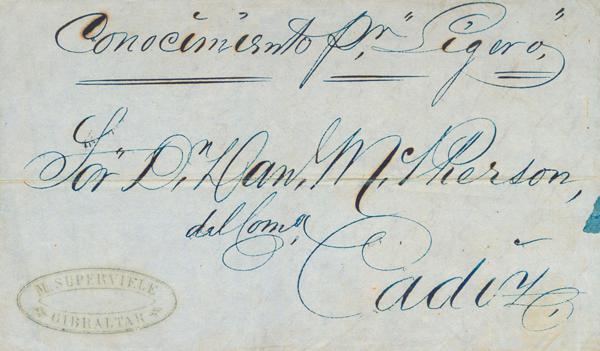 Conocimiento pr. "Ligero,"
Sor. Dn. Dan. McPherson,
del Como.
Cadiz
M. SUPERVIELE
GIBRALTAR